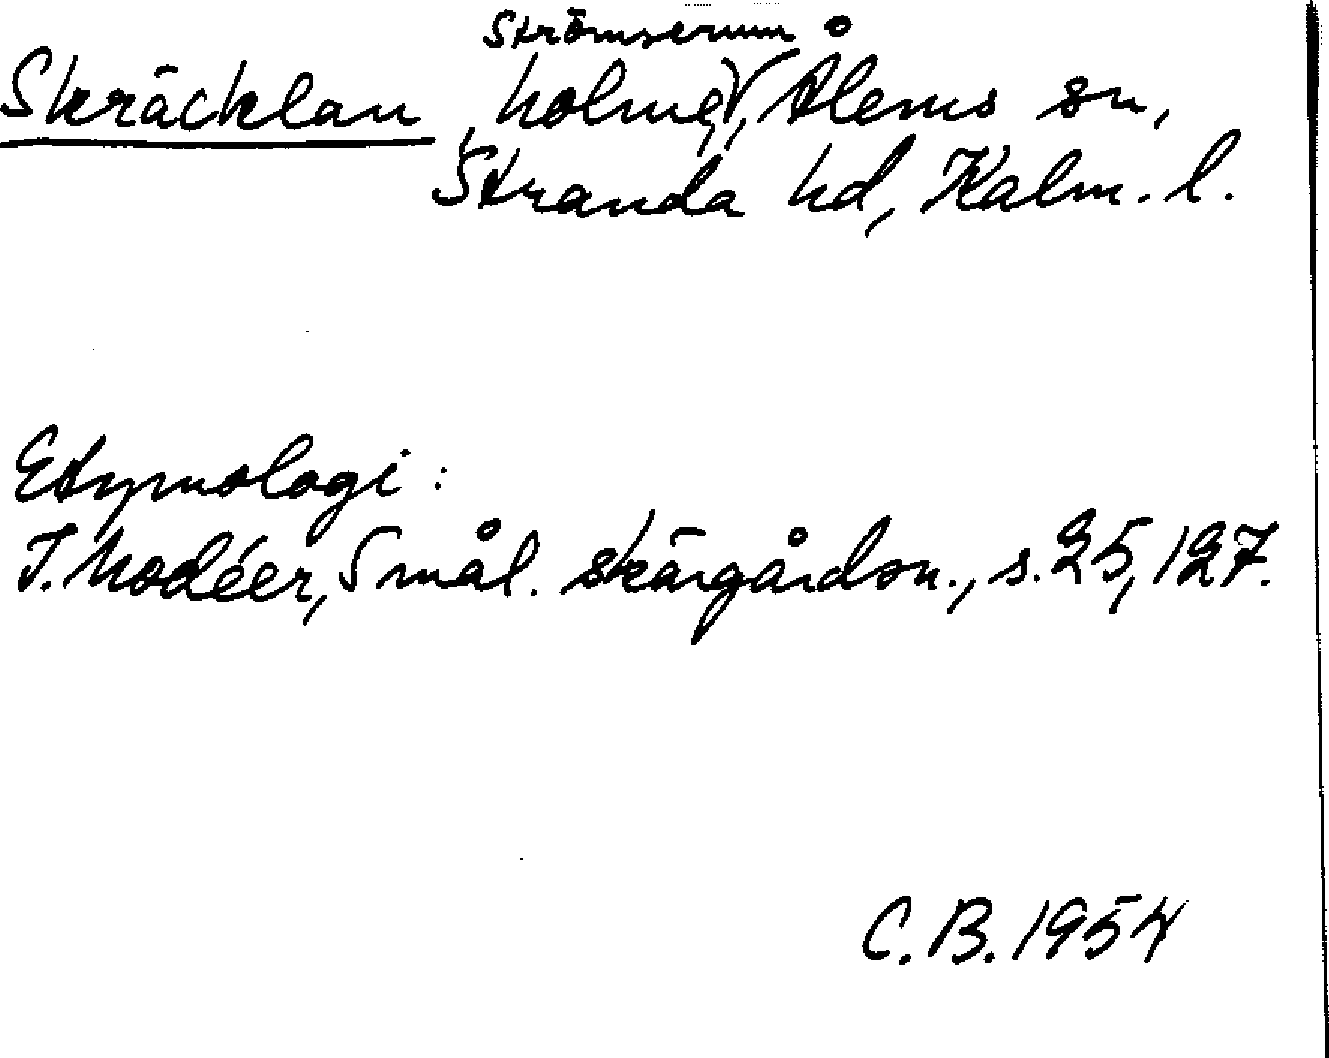 Strömserum
Skräcklan, holme, Ålems sn,
Stranda hd, Kalm. l.
Etymologi:
I. Modéer, Smål. skärgårdsn., s. 25, 127.
C. B. 1954